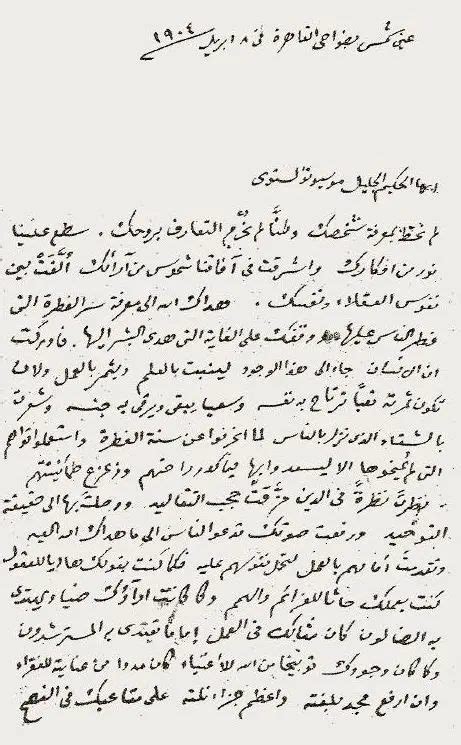 عين شمس بضواحى القاهرة فى ٨ ابريل ١٩٠٤
ايها الحكيم الجليل موسيو تولستوى
لم نحظ بمعرفة شخصك ولكنَّا لم نُحرم التعارف بروحك . سطع علينا
نور من افكارك واشرقت فى آفاقنا شموس من آرائك ألَّفَتْ بين
نفوس العقلاء ونفسك . هداك الله الى معرفة سر الفطرة التى
فطر الناس عليها ووقفك على الغاية التى هدى البشر اليها . فادركت
ان الانسان جاء الى هذا الوجود لينبت بالعلم ويثمر بالعمل ولان
تكون ثمرته تعبا ترتاح به نفسه وسعيا يبقى ويرقى به جنسه وشعرت
بالشقاء الذى نزل بالناس لما انحرفوا عن سنة الفطرة واستعملوا قواهم
التى لم يُمنحوها الا ليسعدوا بها فيما كدر راحتهم وزعزع طمأنينتهم
نظرتَ نظرةً فى الدين مزَّقتْ حجب التقاليد ووصلتَ بها الى حقيقة
التوحيد ورفعت صوتك تدعو الناس الى ما هداك الله اليه
وتقدمت أمامهم بالعمل لتحمل نفوسهم عليه فكما كنت بقولك هاديا للعقول
كنت بعملك حاثا للعزائم والهمم وكما كانت آراؤك ضياء يهتدى
به الضالون كان مثالك فى العمل إماما يقتدى به المسترشدون
وكما كان وجودك توبيخا من الله للأغنياء كان مددا من عنايته للفقراء
وان ارفع مجد بلغته واعظم جزاء نلته على متاعبك فى النصح